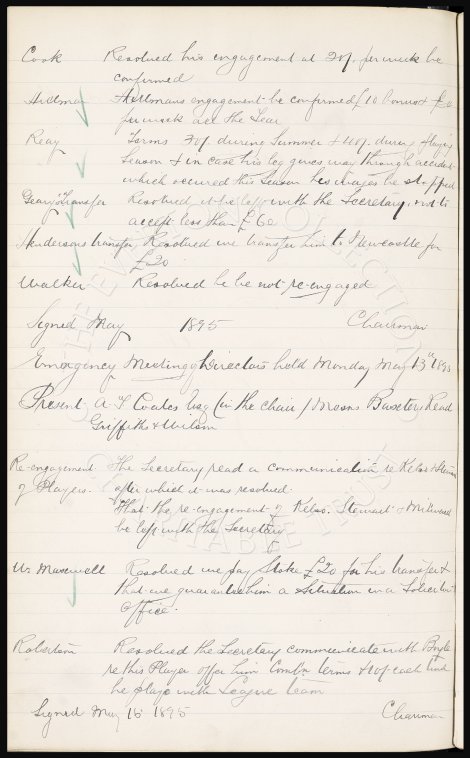 Cook Resolved his engagement at 20/. per week be
confirmed
Hillman Hillmans engagement be confirmed £10 bonus &
per week all the Year
Reay Terms 30/ during Summer & 40/. during playing
Season & in case his leg gives way through accident
which occured this Season his wages be stopped
Geary Transfer Resolved it be left with the Secretary, not to
accept less than £60
Hendersons transfer Resolved we transfer him to Newcastle for
£20
Walker Resolved he be not re-engaged
Signed May 1895 Chairman
Emergency Meeting of Directors held Monday May 13th 1895
Present. A T Coates Esq (in the chair) Messrs Baxter, Read
Griffiths & Wilson
Re-engagement The Secretary read a communication re Kelso &
of Players. after which it was resolved.
That the re-engagement of Kelso. Stewart & Milward
be left with the Secretary
W. Maxwell Resolved we pay Stoke £20 for his transfer &
that we guarantee him a Situation in a Solicitors
Office.
Robertson Resolved the Secretary communicate with
re this Player offer him Comb'n terms & 10/ each time
he plays with League team
Signed May 15 1895 Chairman
THE EVERTON COLLECTION
CHARITABLE TRUST